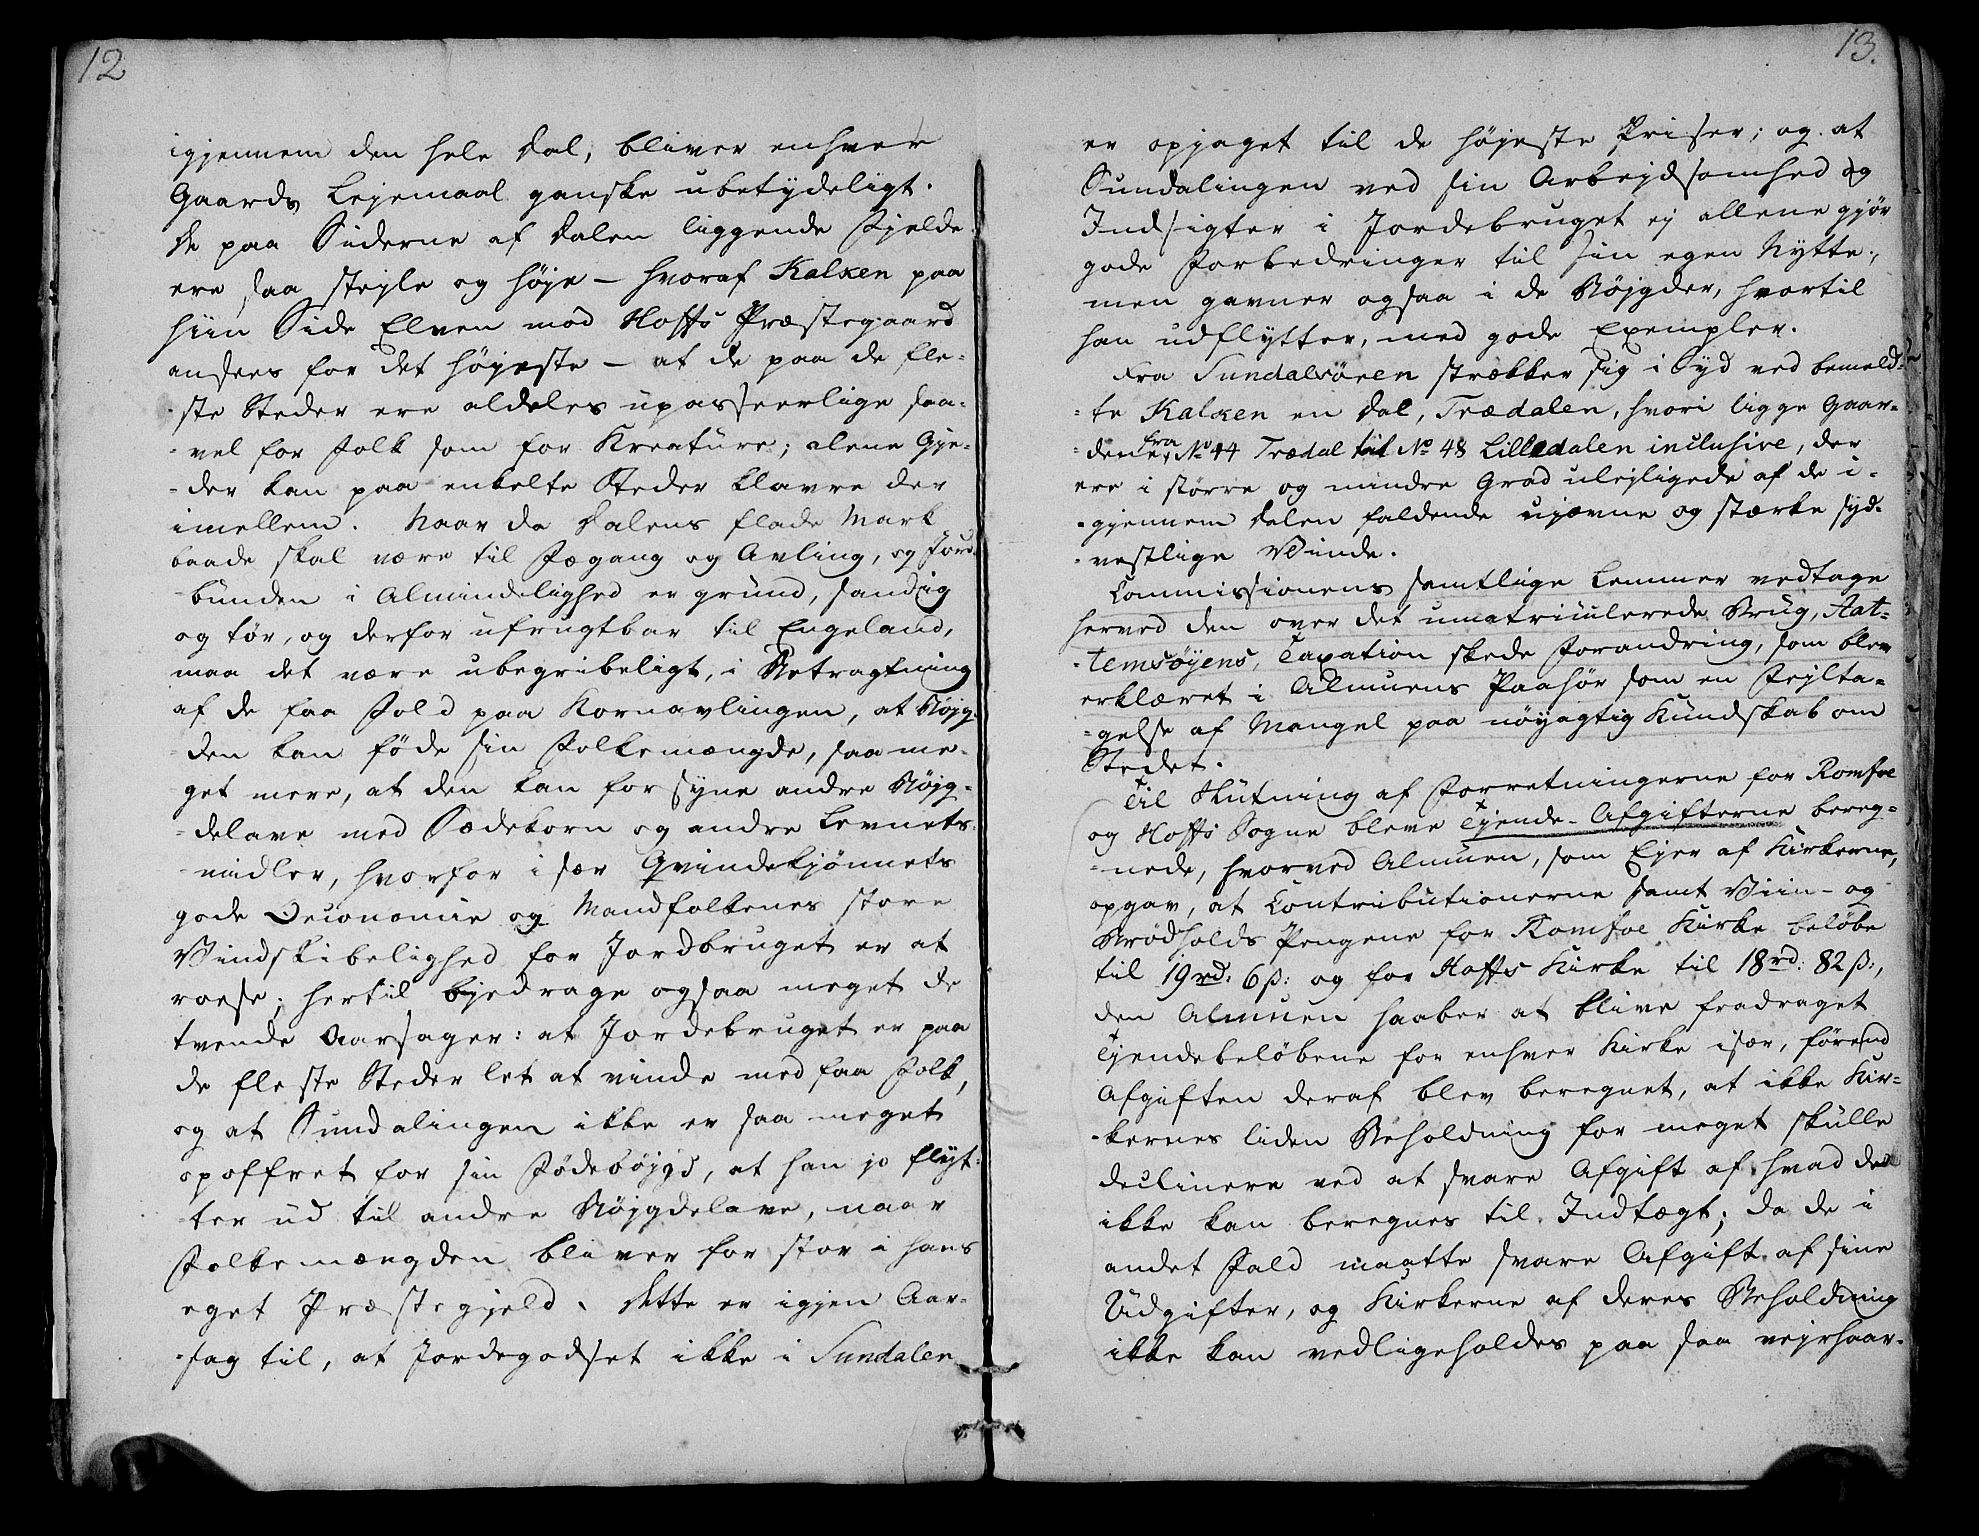 12
igjennem den hele Dal, bliver enhver
Gaards Lejemaal ganske ubetydeligt.
De paa Siderne af Dalen liggende Fjelde
ere saa stejle og høje – hvoraf Kalken paa
hiin Side Elven mod Hoffs Præstegaard
ansees for det højeste – at de paa de fle-
-ste Steder ere aldeles upasseerlige saa-
-vel for Folk som for Kreature; alene Gje-
-der kan paa enkelte Steder klavre der
imellem. Naar da Dalens flade Mark
baade skal være til Fægang og Avling, og Jord-
-bunden i Almindelighed er grund, sandig
og tør, og derfor ufrugtbar til Engeland,
maa det være ubegribeligt, i Betragtning
af de faa Fold paa Kornavlingen, at Bøjg-
-den kan føde sin Folkemængde, saa me-
get mere, at den kan forsyne andre Bøjg-
-delave med Sædekorn og andre Levnets-
-midler, hvorfor især Qvindekjønnets
gode Oeconomie og Mandfolkenes store
Vindskibelighed for Jordbruget er at
roese; hertil bijedrage ogsaa meget de
tvende Aarsager: at Jordebruget er paa
de fleste Steder let at vinde med faa Folk,
og at Sundalingen ikke er saa meget
opoffret for sin Fødebøjgd, at han jo flyt-
-ter ud til andre Bøjgdelave, naar
Folkemængden bliver for stor i hans
eget Præstegjeld. Dette er igjen Aar-
-sag til, at Jordegodset ikke i Sundalen
13.
er opjaget til de højeste Priser; og at
Sundalingen ved sin Arbejdsomhed og
Indsigter i Jordebruget ej allene gjør
gode Forbedringer til sin egen Nytte;
men gavner ogsaa i de Bøjgder, hvortil
han udflytter, med gode Exempler.
Fra Sundalsören strækker sig i Syd ved bemeld-
-te Kalken en Dal, Trædalen, hvori ligge Gaar-
-dene fra No 44 Trædal til No 48 Lilledalen inclusive, der
ere i større og mindre Grad ulejligede af de i-
-gjennem Dalen faldende ujævne og stærke syd-
-vestlige Vinde.
Commissionens samtlige Lemmer vedtage
herved den over det umatriculerede Brug, Aat-
-temsøyens, Taxation skede Forandring, som blev
erklæret i Almuens Paahør som en Fejlta-
-gelse af Mangel paa nøyagtig Kundskab om
Stedet.
Til Slutning af Forretningerne for Romfoe
og Hoffs Sogne bleve Tjende-Afgifterne bereg-
-nede, hvorved Almuen, som Ejer af Kirkerne,
opgav, at Contributionerne samt Viin- og
Brødholds Pengene for Romfoe Kirke beløbe
til 19rd: 6ß: og for Hoffs Kirke til 18rd: 82ß:,
den Almuen haaber at blive fradraget
Tjendebeløbene for enhver Kirke især, førend
Afgiften deraf blev beregnet, at ikke Kir-
-kernes liden Beholdning for meget skulle
declinere ved at svare Afgift af hvad der
ikke kan beregnes til Indtægt; da de i
andet Fald maatte svare Afgift af sine
Udgifter, og Kirkerne af deres Beholdning
ikke kan vedligeholdes paa saa vejrhaar-